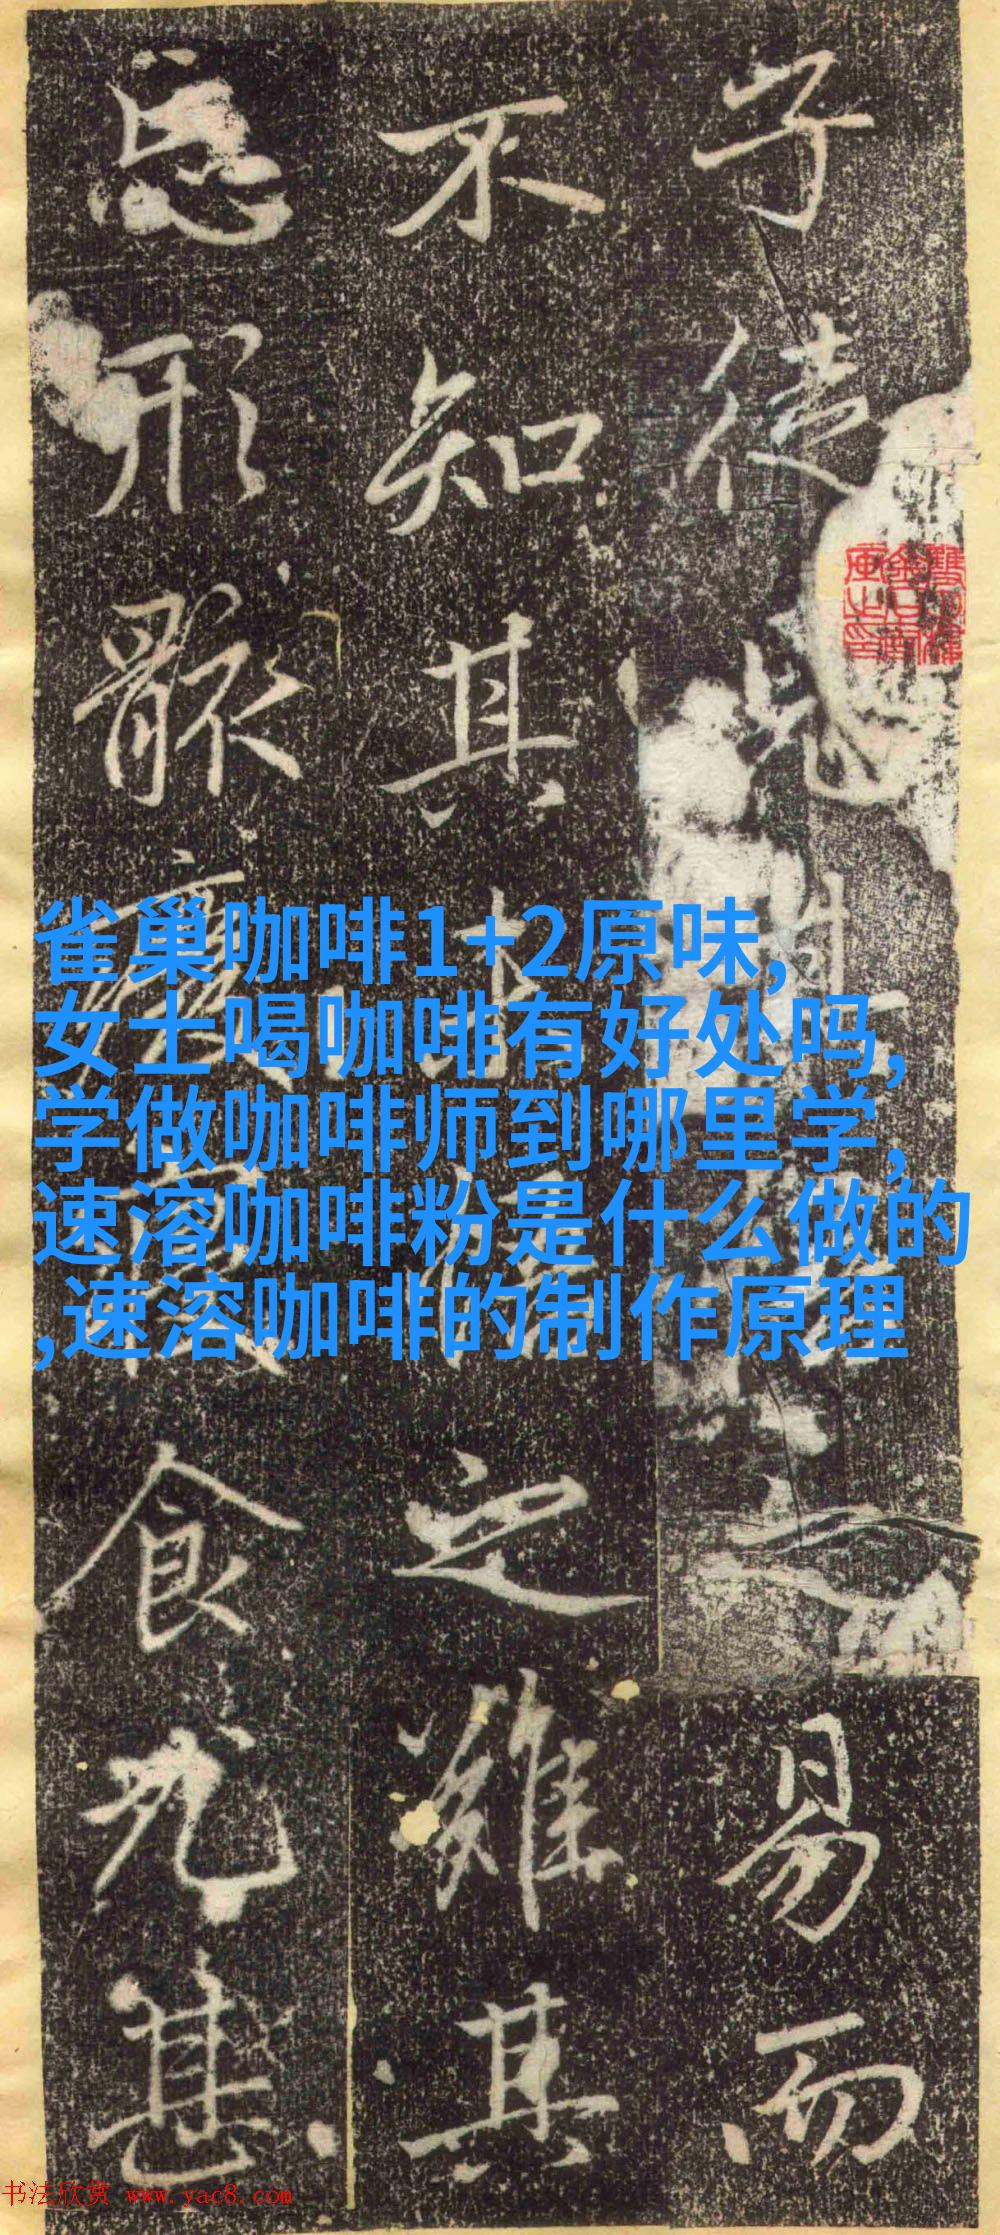 子徒見生
易而
不知其
之難其
忘形骸
食尤甚
雀巢咖啡1+2原味,
女士喝咖啡有好处吗,
学做咖啡师到哪里学,
速溶咖啡粉是什么做的
,速溶咖啡的制作原理
书法欣赏 www.yac8.com